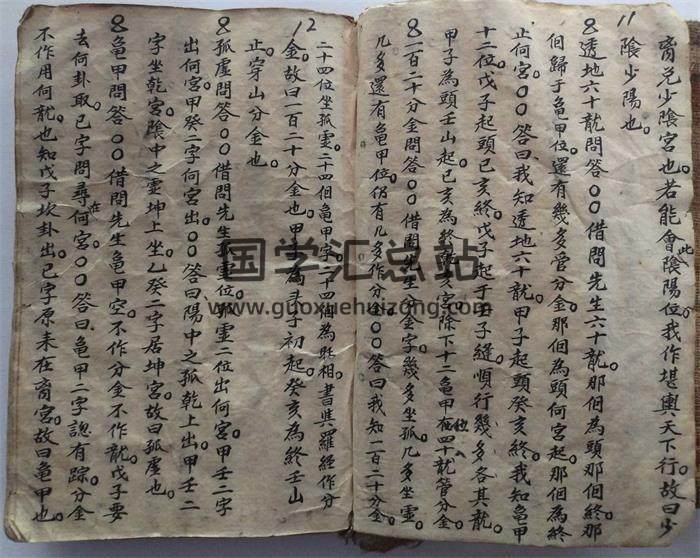 11
裔兌少陰宮也。若能會此陰陽位。我作堪輿天下行。故曰少
陰少陽也。
8透地六十龍問答○○借問先生六十龍。那個為頭那個終那
個歸于亀甲位。還有幾多管分金那個為頭何宮起那個為終
止何宮。○○答曰我知透地六十龍甲子起頭癸亥終。我知亀甲
十二位戊子起頭已亥終。戊子起于壬子縫順行幾多各其龍。
甲子為頭壬山起。已亥為終亥宮除下十二亀甲位四十龍管分金
8一百二十分金問答○○借問先生分金字幾多坐孤几多坐靈。
几多還有亀甲位。仍有几多作分金。○○答曰我知一百二十分金。
12
二十四位坐孤靈。二十四個亀甲字。二十四個為旺相。書與羅經作分
金。故曰一百二十分金也。甲子為壬子初起。癸亥為終壬山
止。穿山分金也。
8孤虛問答○○借問先生孤靈位。孤靈二位出何宮甲壬二字
出何宮。甲癸二字何宮出。○○答曰陽中之孤乾上出甲壬二
字坐乾宮。陰中之靈坤上坐。乙癸二字居坤宮。故曰孤虛也。
8亀甲問答○○借問先生亀甲空。不作分金不作龍。戊子要
去何卦取。已字問尋在何宮。○○答曰亀甲二字認有踪。分金
不作用何龍。也知戊子坎卦出。已字原来在裔宮。故曰亀甲也。
国学汇总站
www.guoxuehuizong.com